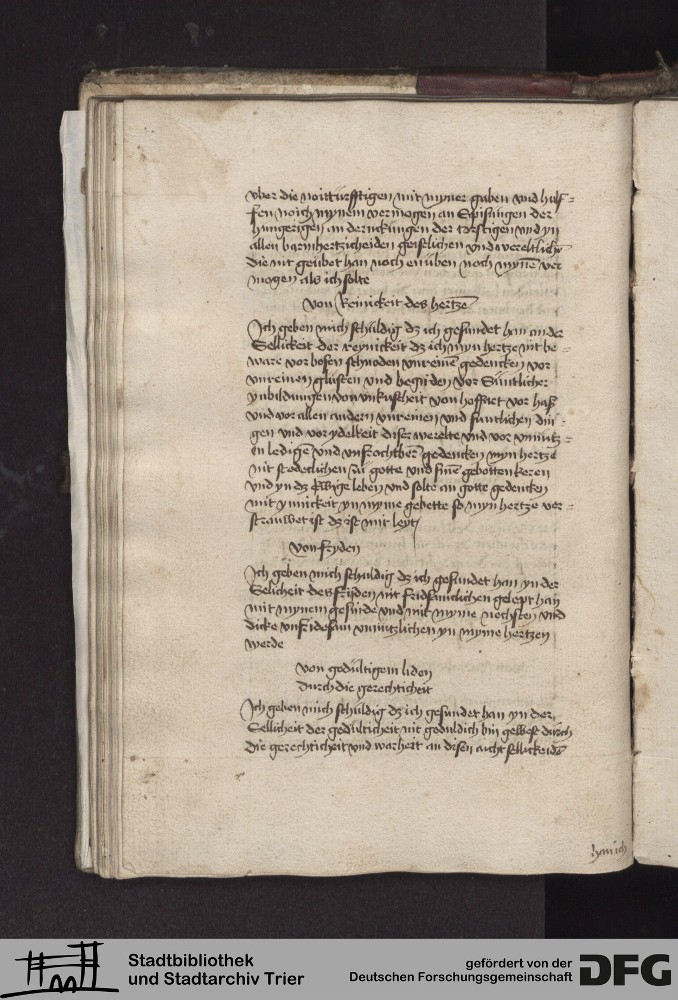 vber die noitturfftigen mit myner gaben vnd hulf=
fen noich mynem vermogen an Spisungen der
hungerigen an drenckungen der dorstigen vnd yn
allen barmhertzicheiden geistlichen vnd wereltlichen
die nit geubet han noch en üben noch myne ver
mogen als ich solte
von Reinickeit des hertze
Ich geben mich schuldig dz ich gesundet han an der
Sellickeit der reynickeit dz ich myn hertze nit be=
ware vor bosen schnoden vnreine gedencken vor
vnreinen glusten vnd begirden vor Suntlicher
ynbildungen von vnkuscheit von hoffart vor haß
vnd vor allen andern vnreinen vnd suntlichen din=
gen vnd vor ydelkeit diser werelte vnd vor vnnutz=
en ledige vnd vnfrochtber gedencken myn hertze
nit stedeclichen zu gotte vnd sine gebotten keren
vnd yn dz ewige leben vnd solte an gotte gedencken
mit ynnickeit yn myme gebette so myn hertze ver=
strauwet ist dz ist mir leyt
von fryden
Ich geben mich schuldig dz ich gesundet han yn der
Selicheit des fryden nit fridsamclichen gelept han
mit mynem gesinde vnd mit myme nechsten vnd
dicke vnfridesam vnnutzlichen yn myme hertzen
werde
von gedultigem liden
durch die gerechticheit
Ich geben mich schuldig dz ich gesundet han yn der
Sellicheit der gedulticheit nit geduldich bin gewest durch
die gerechticheit vnd warheit an disen acht sellickeide
han ich
Stadtbibliothek
und Stadtarchiv Trier
gefördert von der
Deutschen Forschungsgemeinschaft
DFG